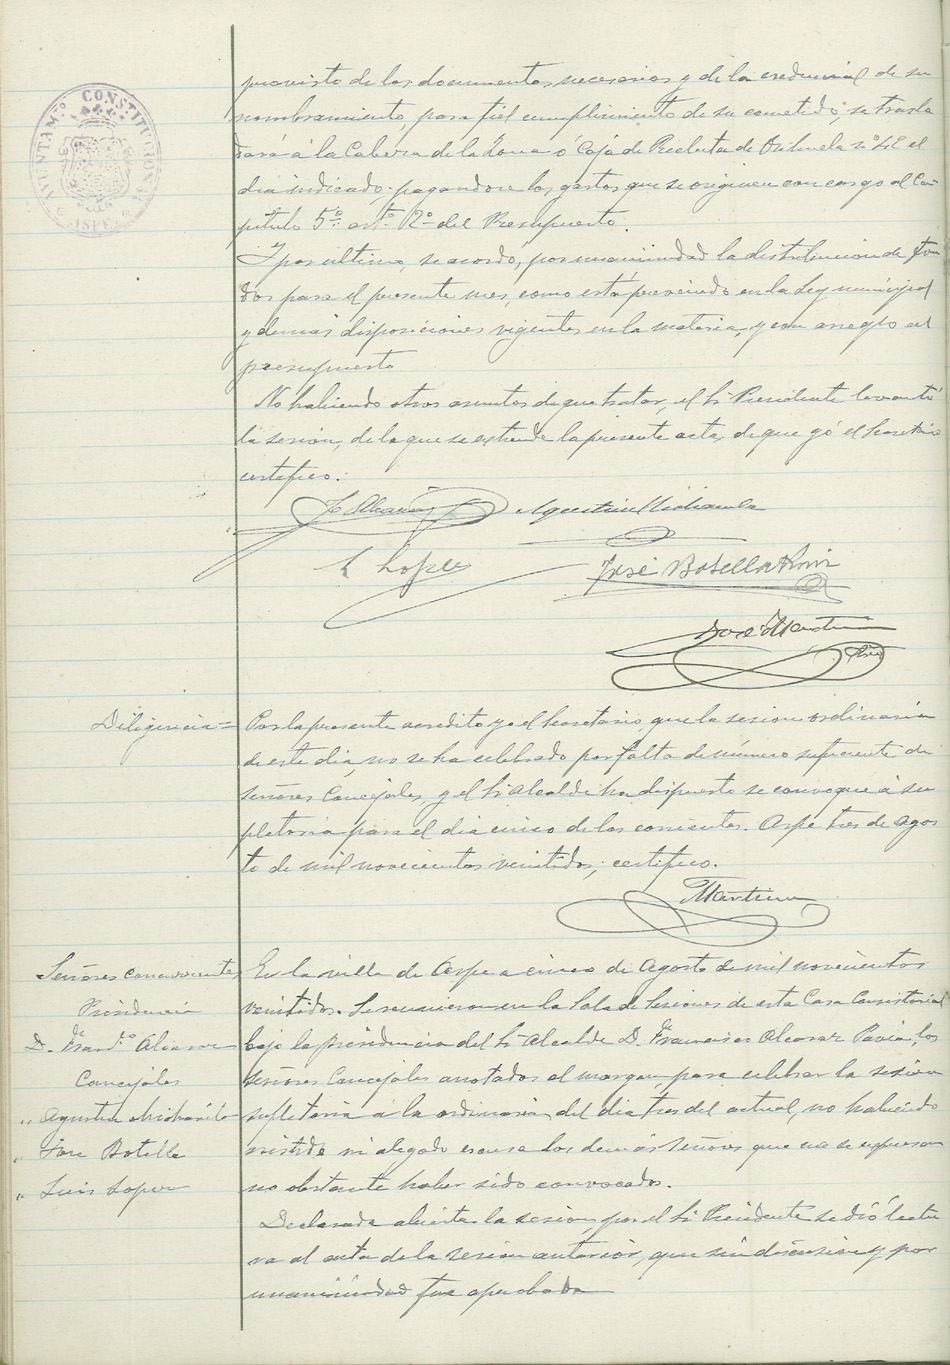 AYUNTAM.TO CONSTITUCIONAL
ASPE
provisto de los documentos necesarios y de la credencial de su
nombramiento, para fiel cumplimiento de su cometido, se trasla
dará á la Cabeza de la Zona ó Caja de Recluta de Orihuela nº el
dia indicado: pagandose los gastos que se originen con cargo al Ca-
pitulo 5º artº 2º del Presupuesto.
Y por ultimo, se acordó, por unanimidad la distribucion de fon
dos para el presente mes, como está prevenido en la Ley municipal
y demás disposiciones vigentes en la materia, y con arreglo al
presupuesto
No habiendo otros asuntos de que tratar, el Sr Presidente levantó
la sesión, de la que se extiende la presente acta, de que yó el Secretario
certifico.
L. Lopez
José Botella
José Martin
Diligencia =
Por la presente acredito yo el Secretario, que la sesion ordinaria
de este dia, no se ha celebrado por falta de número suficiente de
señores Concejales, y el Sr Alcalde ha dispuesto se convoque á su
pletoria para el dia cinco de los corrientes. Aspe tres de Agos
to de mil novecientos veintidos; certifico.
Martin
Señores concurrentes
Presidencia
D. Franco Alcaraz
Concejales
" Agustin
" Jose Botella
" Luis Lopez
En la villa de Aspe a cinco de Agosto de mil novecientos
veintidos. Se reunieron en la Sala de Sesiones de esta Casa Consistorial
bajo la presidencia del Sr Alcalde D. Francisco Alcaraz Pavía, los
señores Concejales anotados al margen, para celebrar la sesión
supletoria á la ordinaria del dia tres del actual, no habiendo
asistido ni alegado escusa los demás señores que no se expresan
no obstante haber sido convocados.
Declarada abierta la sesion por el Sr Presidente se dió lectu
ra al acta de la sesion anterior, que sin discusion y por
unanimidad fue aprobada